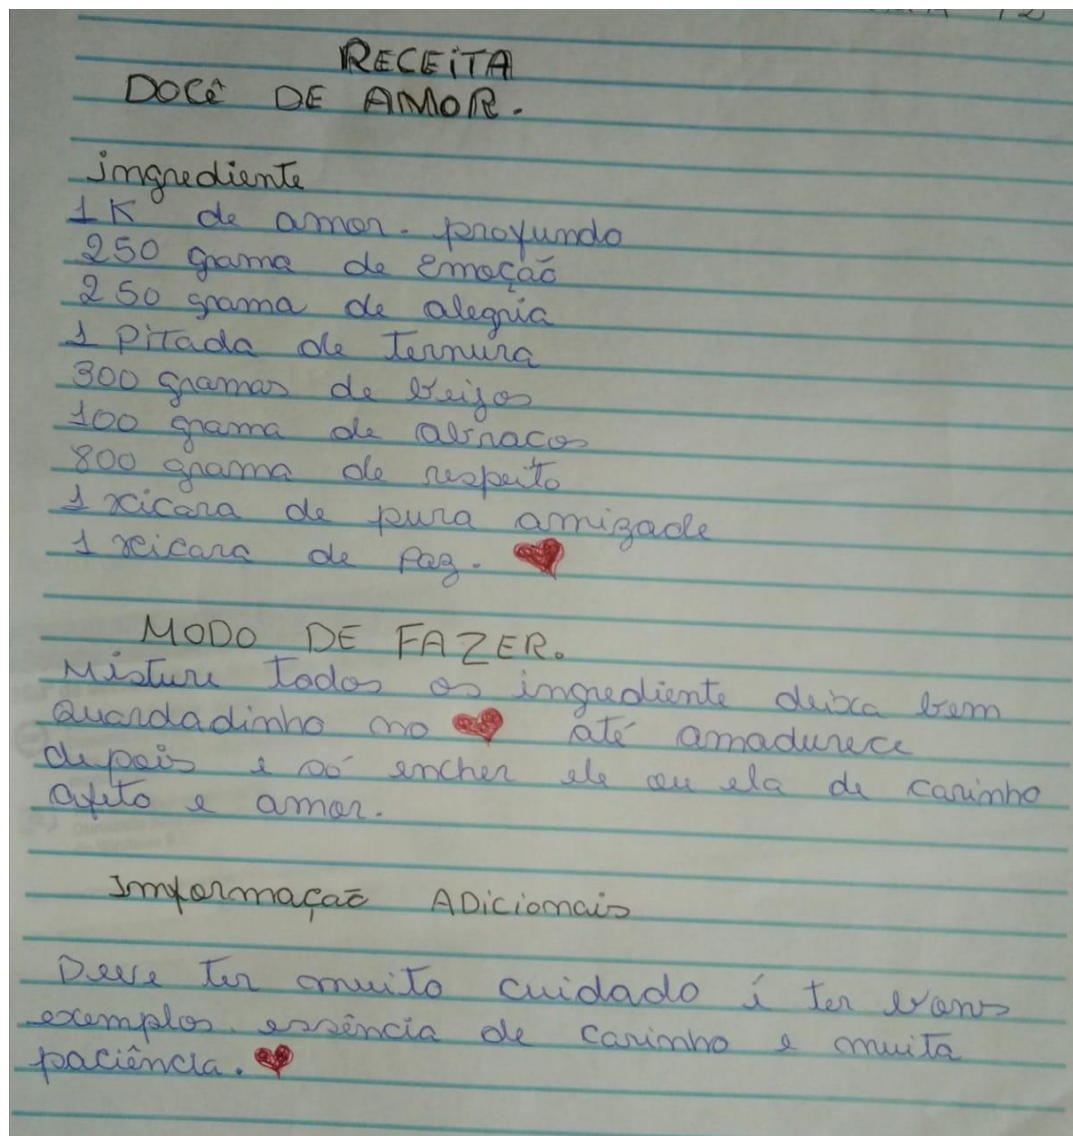 RECEITA
DOCÊ DE AMOR.
ingrediente
1K de amor. profundo
250 grama de Emoção
250 grama de alegria
1 Pitada de Ternura
300 gramas de beijos
100 grama de abracos
800 grama de respeito
1 xicara de pura amizade
1 xeicara de paz. ❤
MODO DE FAZER.
Misture todos os ingrediente deixa bem
Quardadinho no ❤ até amadurece
depois e só encher ele ou ela de carinho
afeto e amor.
Imformação ADicionais
Deve ter muito cuidado i ter bons
exemplos. essência de carinho e muita
paciência. ❤